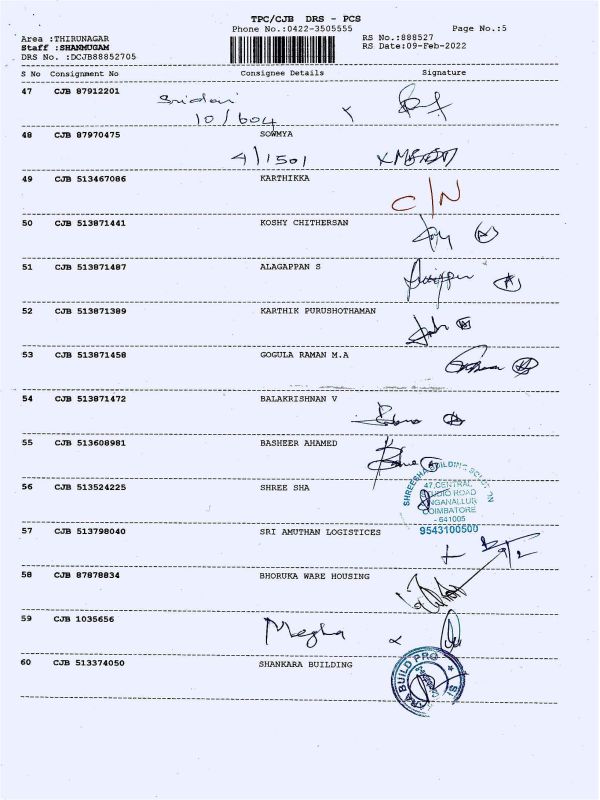 TPC/CJB DRS - PCS
Phone No.:0422-3505555 Page No.:5
Area :THIRUNAGAR RS No.:888527
Staff :SHANMUGAM RS Date:09-Feb-2022
DRS No. :DCJB88852705
S No Consignment No Consignee Details Signature
47 CJB 87912201
Sridari
10/604 x
48 CJB 87970475 SOWMYA
4/1501 x
49 CJB 513467086 KARTHIKKA
C/N
50 CJB 513871441 KOSHY CHITHERSAN
51 CJB 513871487 ALAGAPPAN S
52 CJB 513871389 KARTHIK PURUSHOTHAMAN
53 CJB 513871458 GOGULA RAMAN M.A
54 CJB 513871472 BALAKRISHNAN V
55 CJB 513608981 BASHEER AHAMED
56 CJB 513524225 SHREE SHA
SHREESHA BUILDING
47,CENTRAL
STUDIO ROAD
SINGANALLUR
COIMBATORE
- 641005
9543100500
57 CJB 513798040 SRI AMUTHAN LOGISTICES
58 CJB 87878834 BHORUKA WARE HOUSING
59 CJB 1035656 Megha
60 CJB 513374050 SHANKARA BUILDING
BUILD PRO